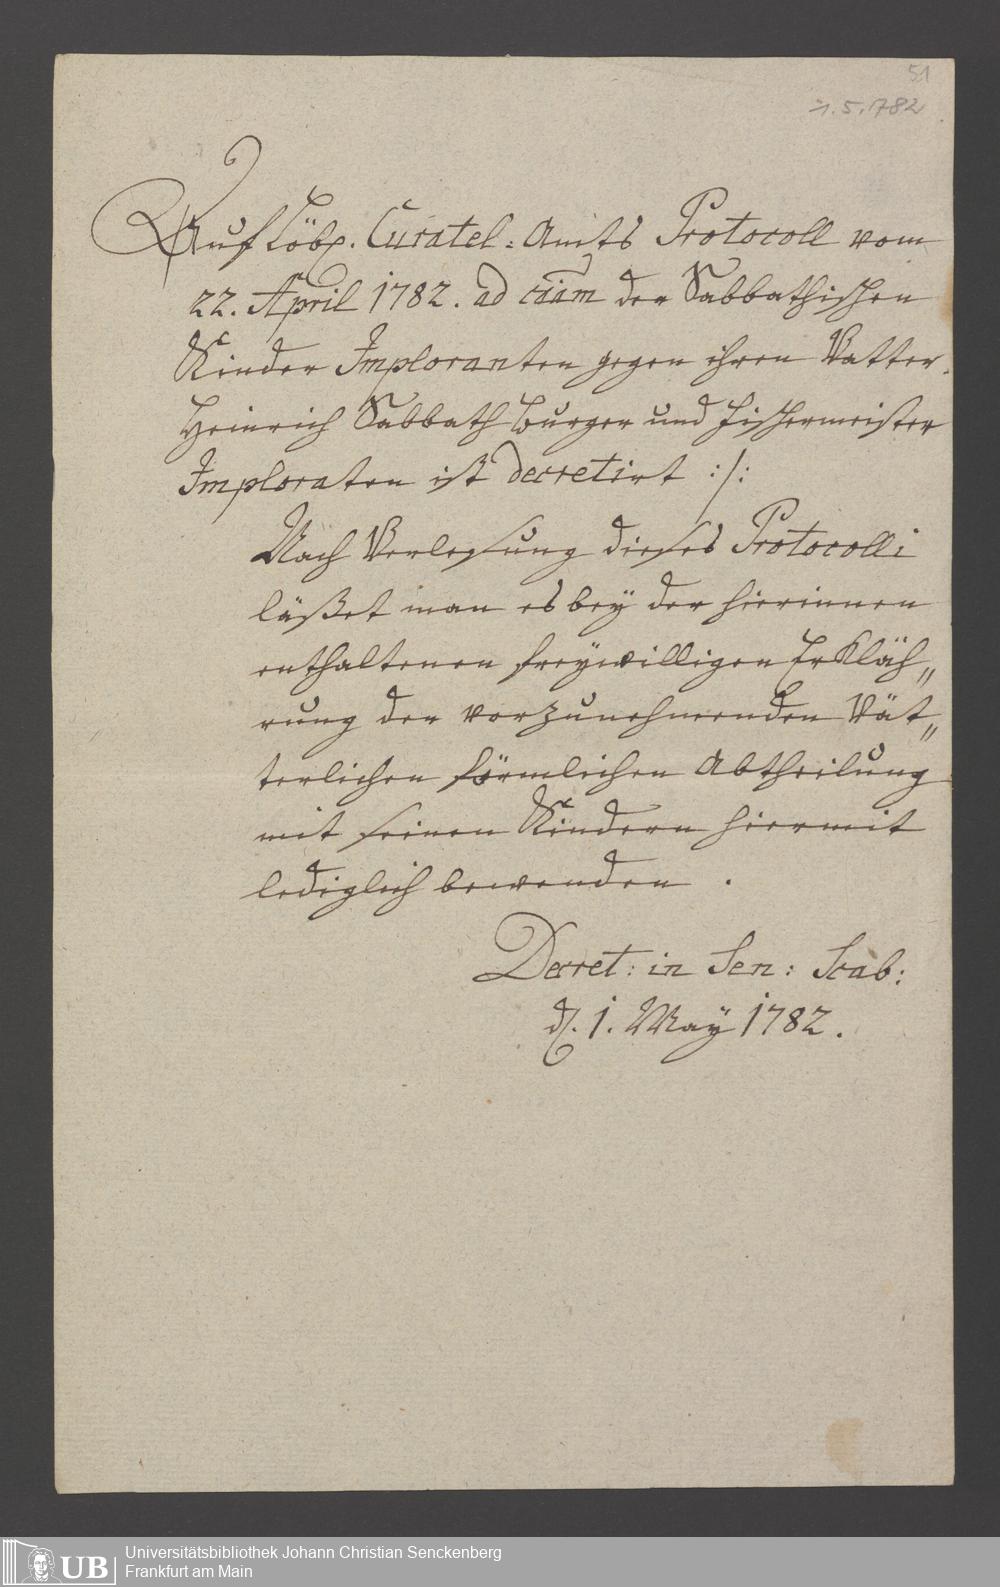 51
1.5.1782
Auf Löbl. Curatel-Amts Protocoll vom
22. April 1782. ad cãam der Sabbathischen
Kinder Imploranten gegen ihren Vatter
Heinrich Sabbath burger und fischermeister
Imploraten ist decretirt :/:
Nach Verlesung dieses Protocolli
läßet man es bey der hierinnen
enthaltenen freywilligen Erkläh„
rung der vorzunehmenden Vät„
terlichen förmlichen Abtheilung
mit seinen Kindern hiermit
lediglich bewenden .
Decret: in Sen: Scab:
d. 1. May 1782.
UB
Universitätsbibliothek Johann Christian Senckenberg
Frankfurt am Main